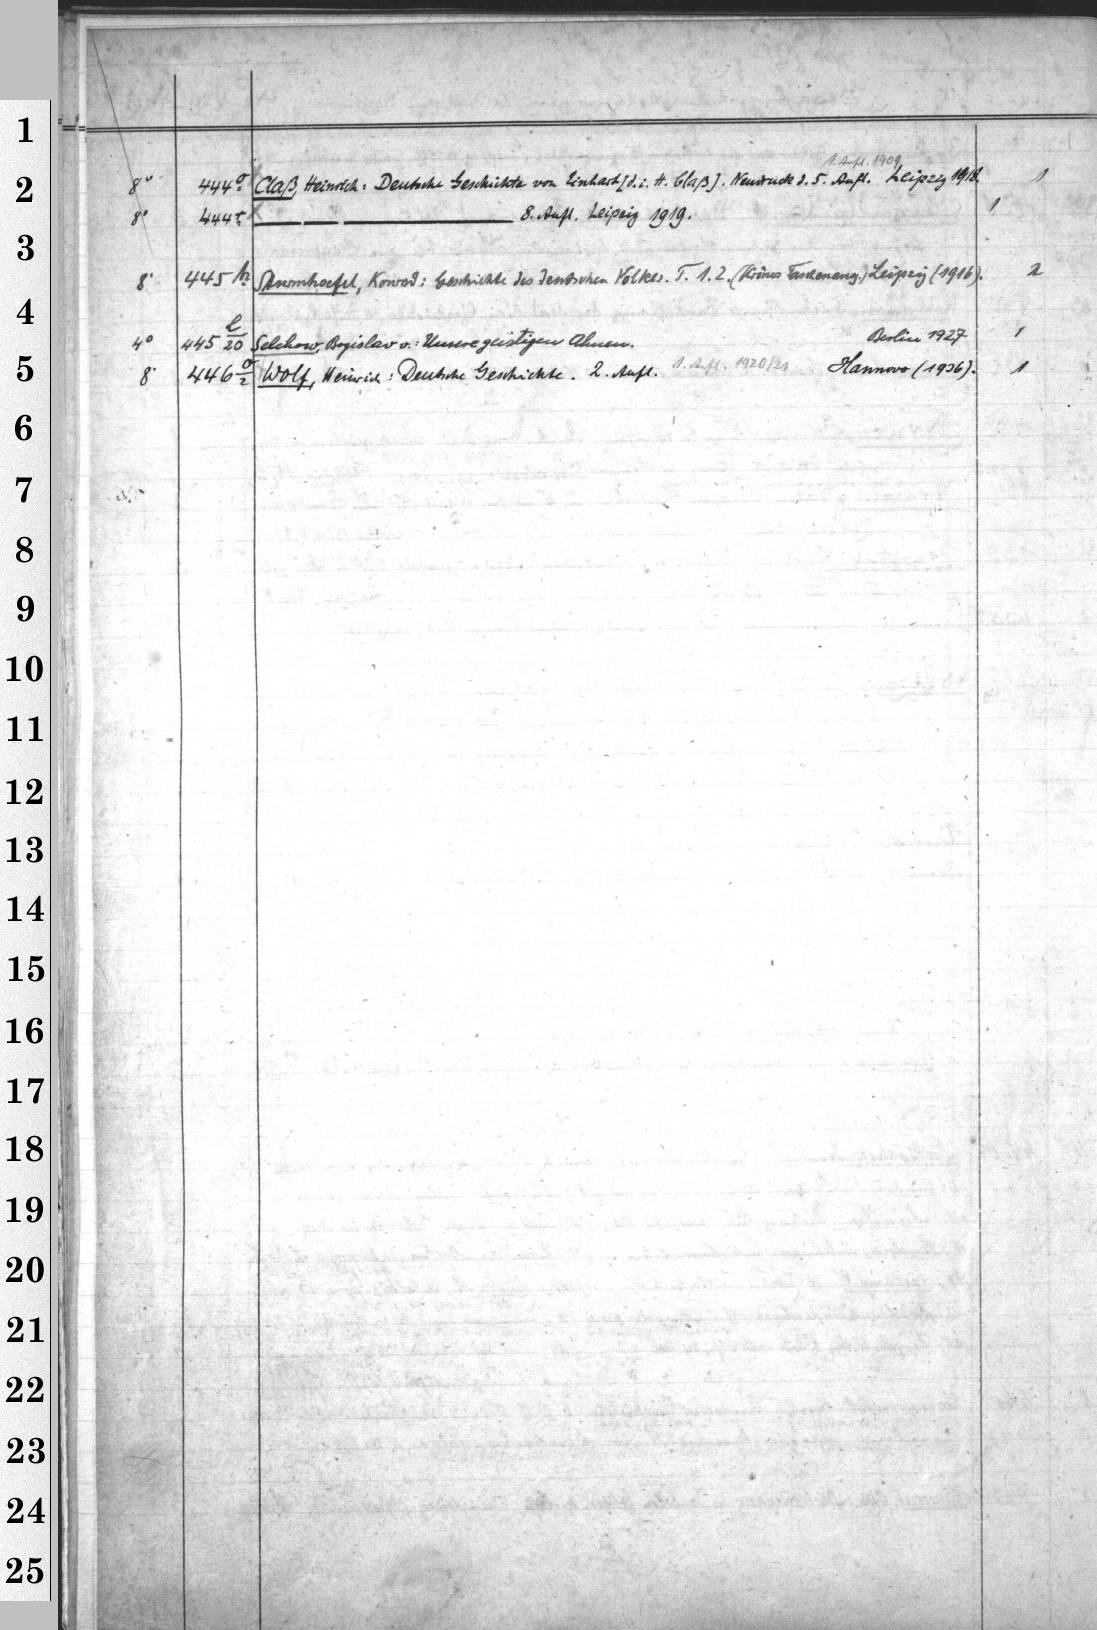 1
2
3
4
5
6
7
8
9
10
11
12
13
14
15
16
17
18
19
20
21
22
23
24
25
1. Aufl. 1909
8° 444 Claß, Heinrich: Deutsche Geschichte von Einhart [d. i. H. Claß]. Neudruck d. 5. Aufl. Leipzig 1918. 1
8° 444 — — — 8. Aufl. Leipzig 1919. 1
8° 445 h/2 Sturmhoefel, Konrad: Geschichte des deutschen Volkes. T. 1. 2. Leipzig (1916). 2
4° 445 l/20 Selchow, Bogislav v.: Unsere geistigen Ahnen. Berlin 1927 1
8° 446 o/2 Wolf, Heinrich: Deutsche Geschichte. 2. Aufl. 1. Aufl. 1920/21 Hannover (1936). 1